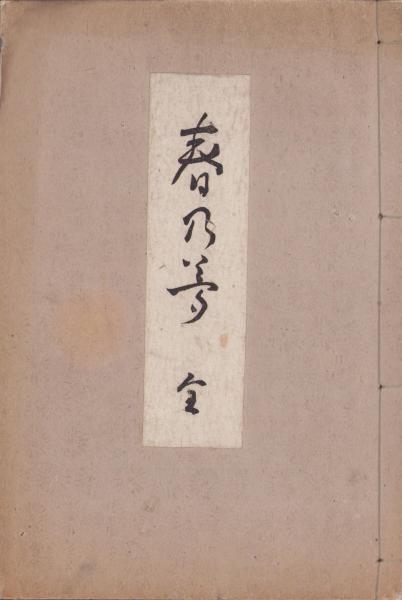 春乃夢 全